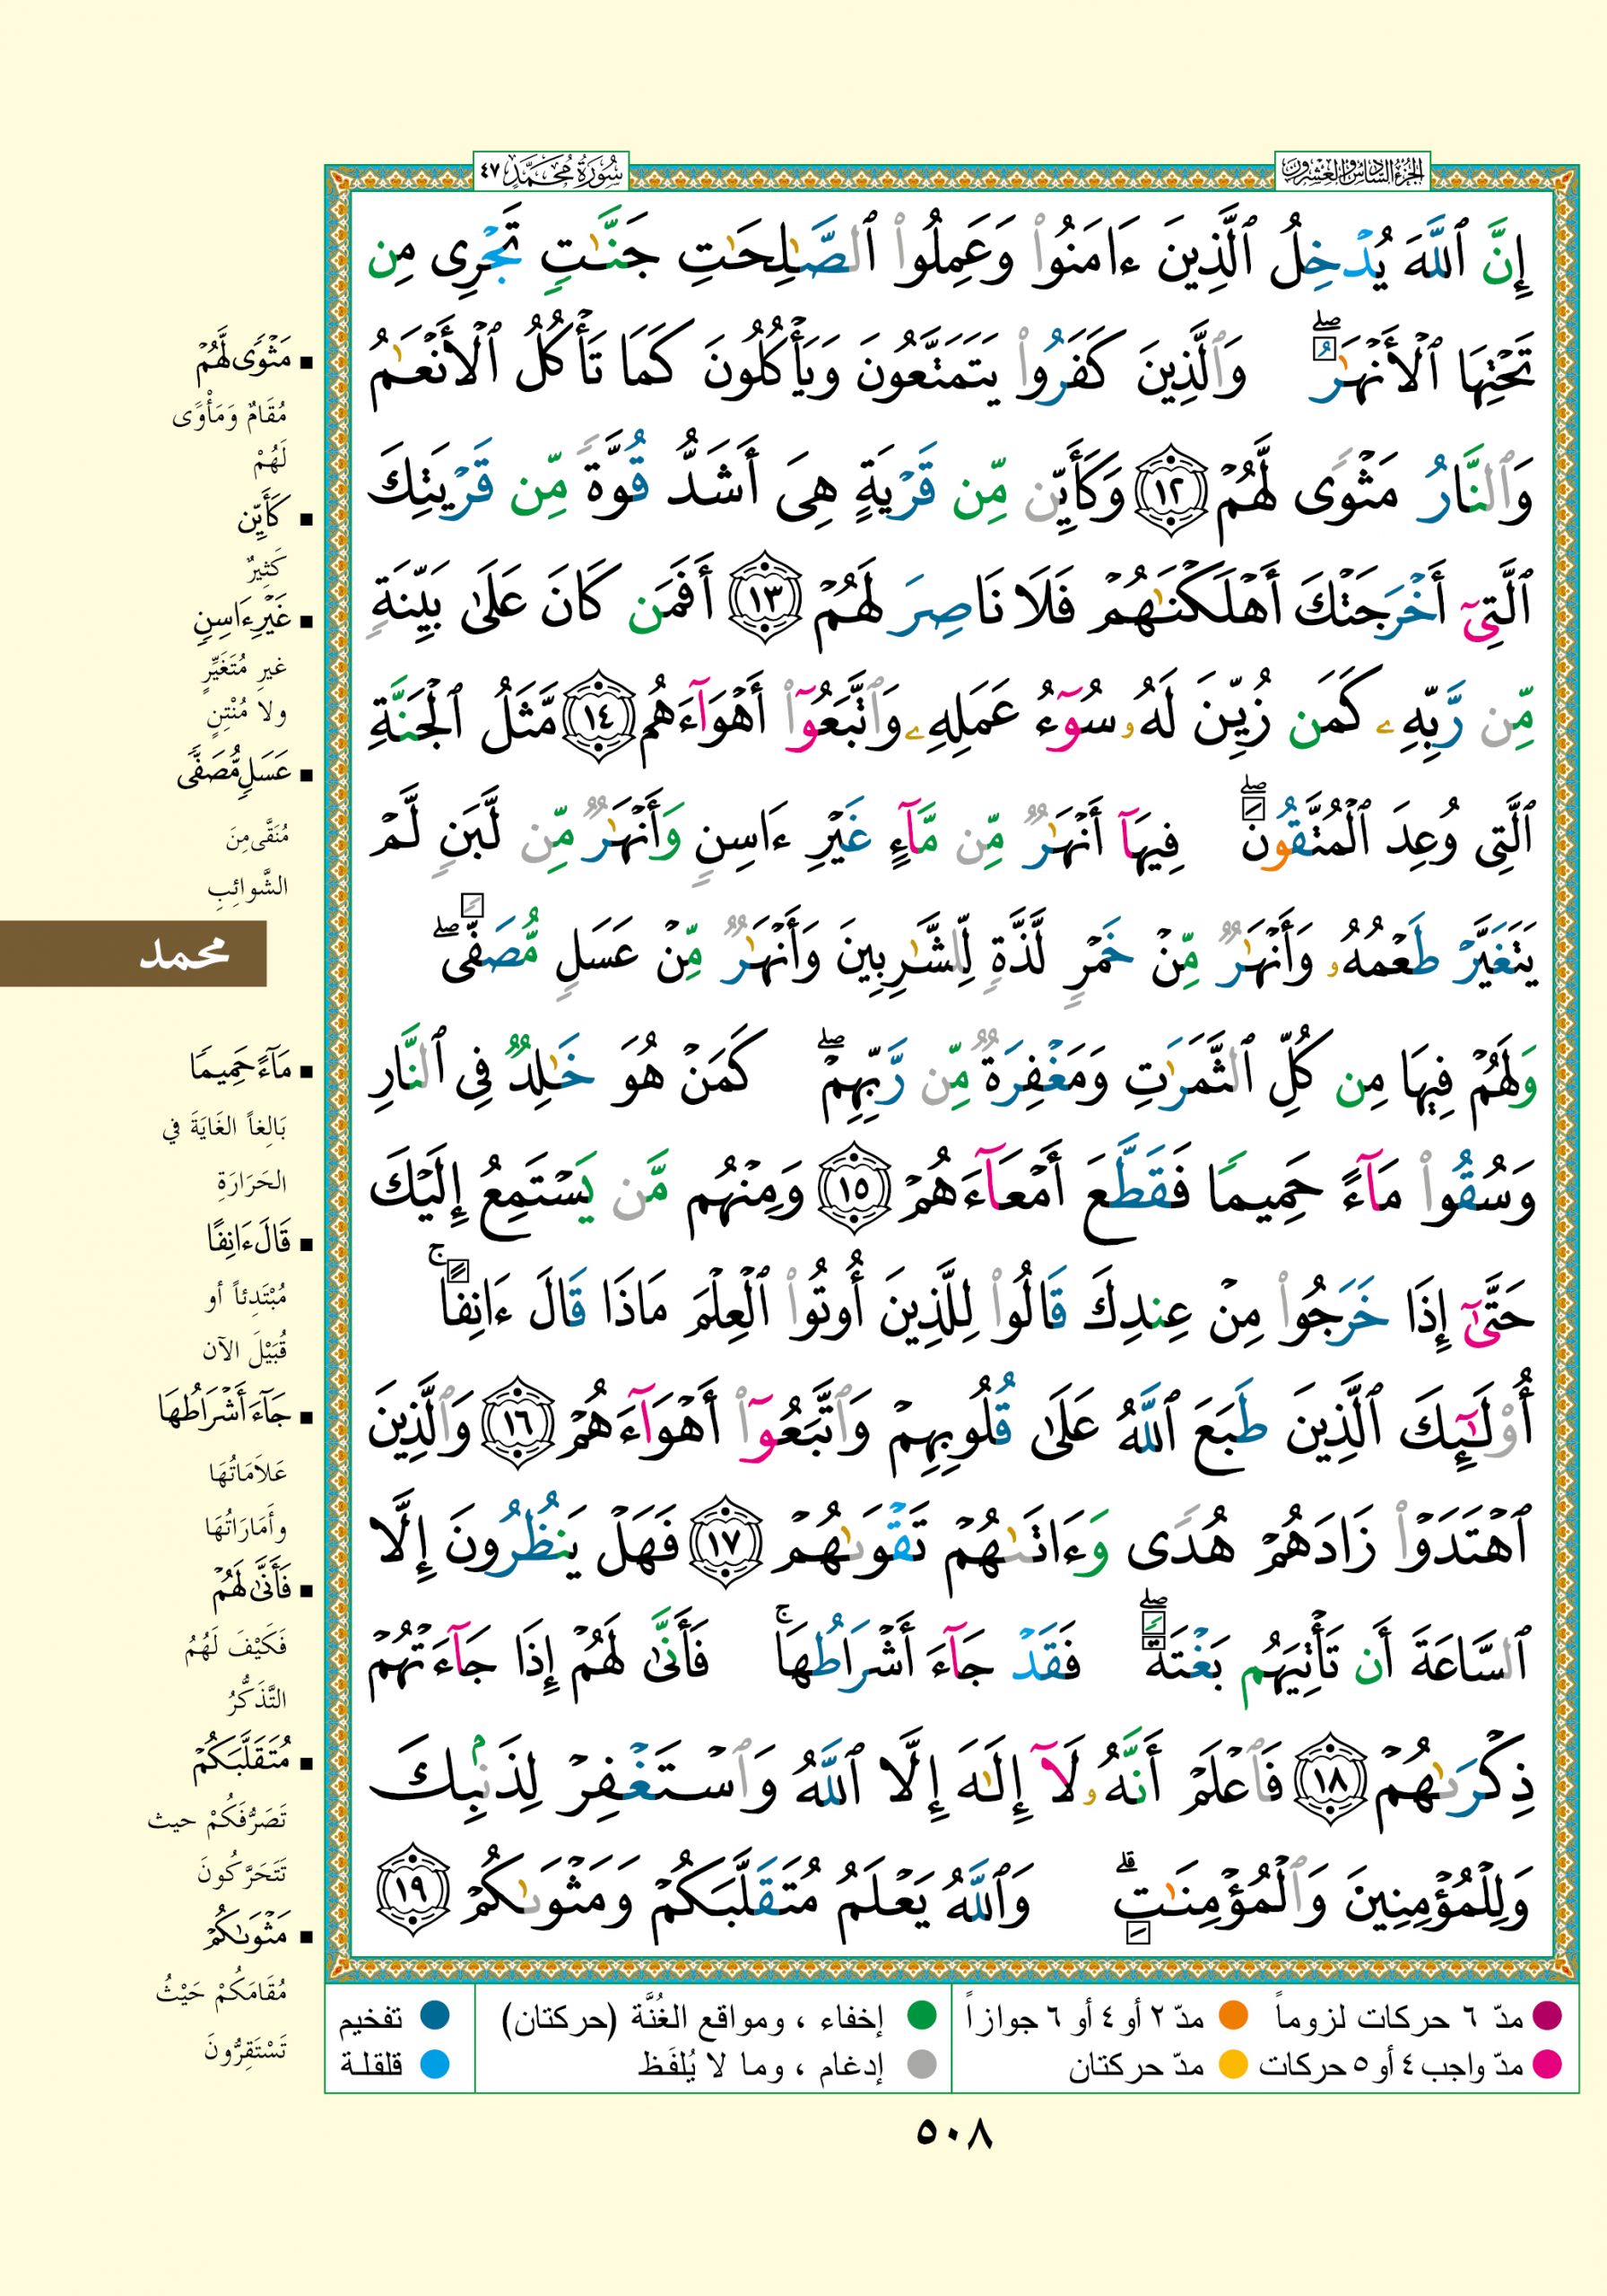 الجزء السادس والعشرون
سُورَةُ مُحَمَّدٍ ٤٧
إِنَّ ٱللَّهَ يُدۡخِلُ ٱلَّذِينَ ءَامَنُواْ وَعَمِلُواْ ٱلصَّٰلِحَٰتِ جَنَّٰتٖ تَجۡرِي مِن
تَحۡتِهَا ٱلۡأَنۡهَٰرُۖ وَٱلَّذِينَ كَفَرُواْ يَتَمَتَّعُونَ وَيَأۡكُلُونَ كَمَا تَأۡكُلُ ٱلۡأَنۡعَٰمُ
وَٱلنَّارُ مَثۡوٗى لَّهُمۡ ١٢ وَكَأَيِّن مِّن قَرۡيَةٍ هِيَ أَشَدُّ قُوَّةٗ مِّن قَرۡيَتِكَ
ٱلَّتِيٓ أَخۡرَجَتۡكَ أَهۡلَكۡنَٰهُمۡ فَلَا نَاصِرَ لَهُمۡ ١٣ أَفَمَن كَانَ عَلَىٰ بَيِّنَةٖ
مِّن رَّبِّهِۦ كَمَن زُيِّنَ لَهُۥ سُوٓءُ عَمَلِهِۦ وَٱتَّبَعُوٓاْ أَهۡوَآءَهُم ١٤ مَّثَلُ ٱلۡجَنَّةِ
ٱلَّتِي وُعِدَ ٱلۡمُتَّقُونَۖ فِيهَآ أَنۡهَٰرٞ مِّن مَّآءٍ غَيۡرِ ءَاسِنٖ وَأَنۡهَٰرٞ مِّن لَّبَنٖ لَّمۡ
يَتَغَيَّرۡ طَعۡمُهُۥ وَأَنۡهَٰرٞ مِّنۡ خَمۡرٖ لَّذَّةٖ لِّلشَّٰرِبِينَ وَأَنۡهَٰرٞ مِّنۡ عَسَلٖ مُّصَفّٗىۖ
وَلَهُمۡ فِيهَا مِن كُلِّ ٱلثَّمَرَٰتِ وَمَغۡفِرَةٞ مِّن رَّبِّهِمۡۖ كَمَنۡ هُوَ خَٰلِدٞ فِي ٱلنَّارِ
وَسُقُواْ مَآءً حَمِيمٗا فَقَطَّعَ أَمۡعَآءَهُمۡ ١٥ وَمِنۡهُم مَّن يَسۡتَمِعُ إِلَيۡكَ
حَتَّىٰٓ إِذَا خَرَجُواْ مِنۡ عِندِكَ قَالُواْ لِلَّذِينَ أُوتُواْ ٱلۡعِلۡمَ مَاذَا قَالَ ءَانِفًاۚ
أُوْلَٰٓئِكَ ٱلَّذِينَ طَبَعَ ٱللَّهُ عَلَىٰ قُلُوبِهِمۡ وَٱتَّبَعُوٓاْ أَهۡوَآءَهُمۡ ١٦ وَٱلَّذِينَ
ٱهۡتَدَوۡاْ زَادَهُمۡ هُدٗى وَءَاتَىٰهُمۡ تَقۡوَىٰهُمۡ ١٧ فَهَلۡ يَنظُرُونَ إِلَّا
ٱلسَّاعَةَ أَن تَأۡتِيَهُم بَغۡتَةٗۖ فَقَدۡ جَآءَ أَشۡرَاطُهَاۚ فَأَنَّىٰ لَهُمۡ إِذَا جَآءَتۡهُمۡ
ذِكۡرَىٰهُمۡ ١٨ فَٱعۡلَمۡ أَنَّهُۥ لَآ إِلَٰهَ إِلَّا ٱللَّهُ وَٱسۡتَغۡفِرۡ لِذَنۢبِكَ
وَلِلۡمُؤۡمِنِينَ وَٱلۡمُؤۡمِنَٰتِۗ وَٱللَّهُ يَعۡلَمُ مُتَقَلَّبَكُمۡ وَمَثۡوَىٰكُمۡ ١٩
■ مَثۡوٗى لَّهُمۡ
مُقَامٌ وَمَأْوًى
لَهُمْ
■ كَأَيِّن
كَثِيرٌ
■ غَيۡرِ ءَاسِنٖ
غيرِ مُتَغَيِّرٍ
ولا مُنْتِنٍ
■ عَسَلٖ مُّصَفّٗى
مُنَقَّى مِنَ
الشَّوائِبِ
محمد
■ مَآءً حَمِيمٗا
بَالِغاً الغَايَةَ في
الحَرَارَةِ
■ قَالَ ءَانِفًا
مُبْتَدِئاً أو
قُبَيْلَ الآن
■ جَآءَ أَشۡرَاطُهَا
عَلاَمَاتُهَا
وأَمَارَاتُهَا
■ فَأَنَّىٰ لَهُمۡ
فَكَيْفَ لَهُمُ
التَّذَكُّرُ
■ مُتَقَلَّبَكُمۡ
تَصَرُّفَكُمْ حيث
تَتَحَرَّكُونَ
■ مَثۡوَىٰكُمۡ
مُقَامَكُمْ حَيْثُ
تَسْتَقِرُّونَ
مدّ ٦ حركات لزوماً مدّ ٢ أو ٤ أو ٦ جوازاً
مدّ واجب ٤ أو ٥ حركات مدّ حركتان
إخفاء ، ومواقع الغُنَّة (حركتان)
إدغام ، وما لا يُلفَظ
تفخيم
قلقلة
٥٠٨